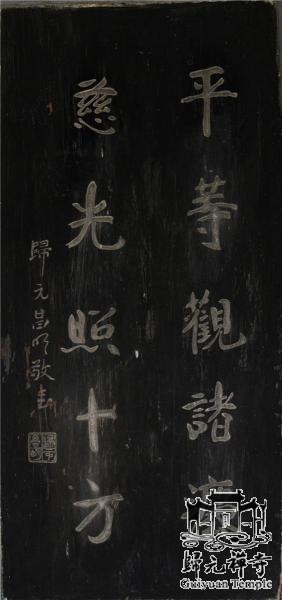 平等觀諸法
慈光照十方
歸元昌明敬書
歸元禪寺
Guiyuan Temple